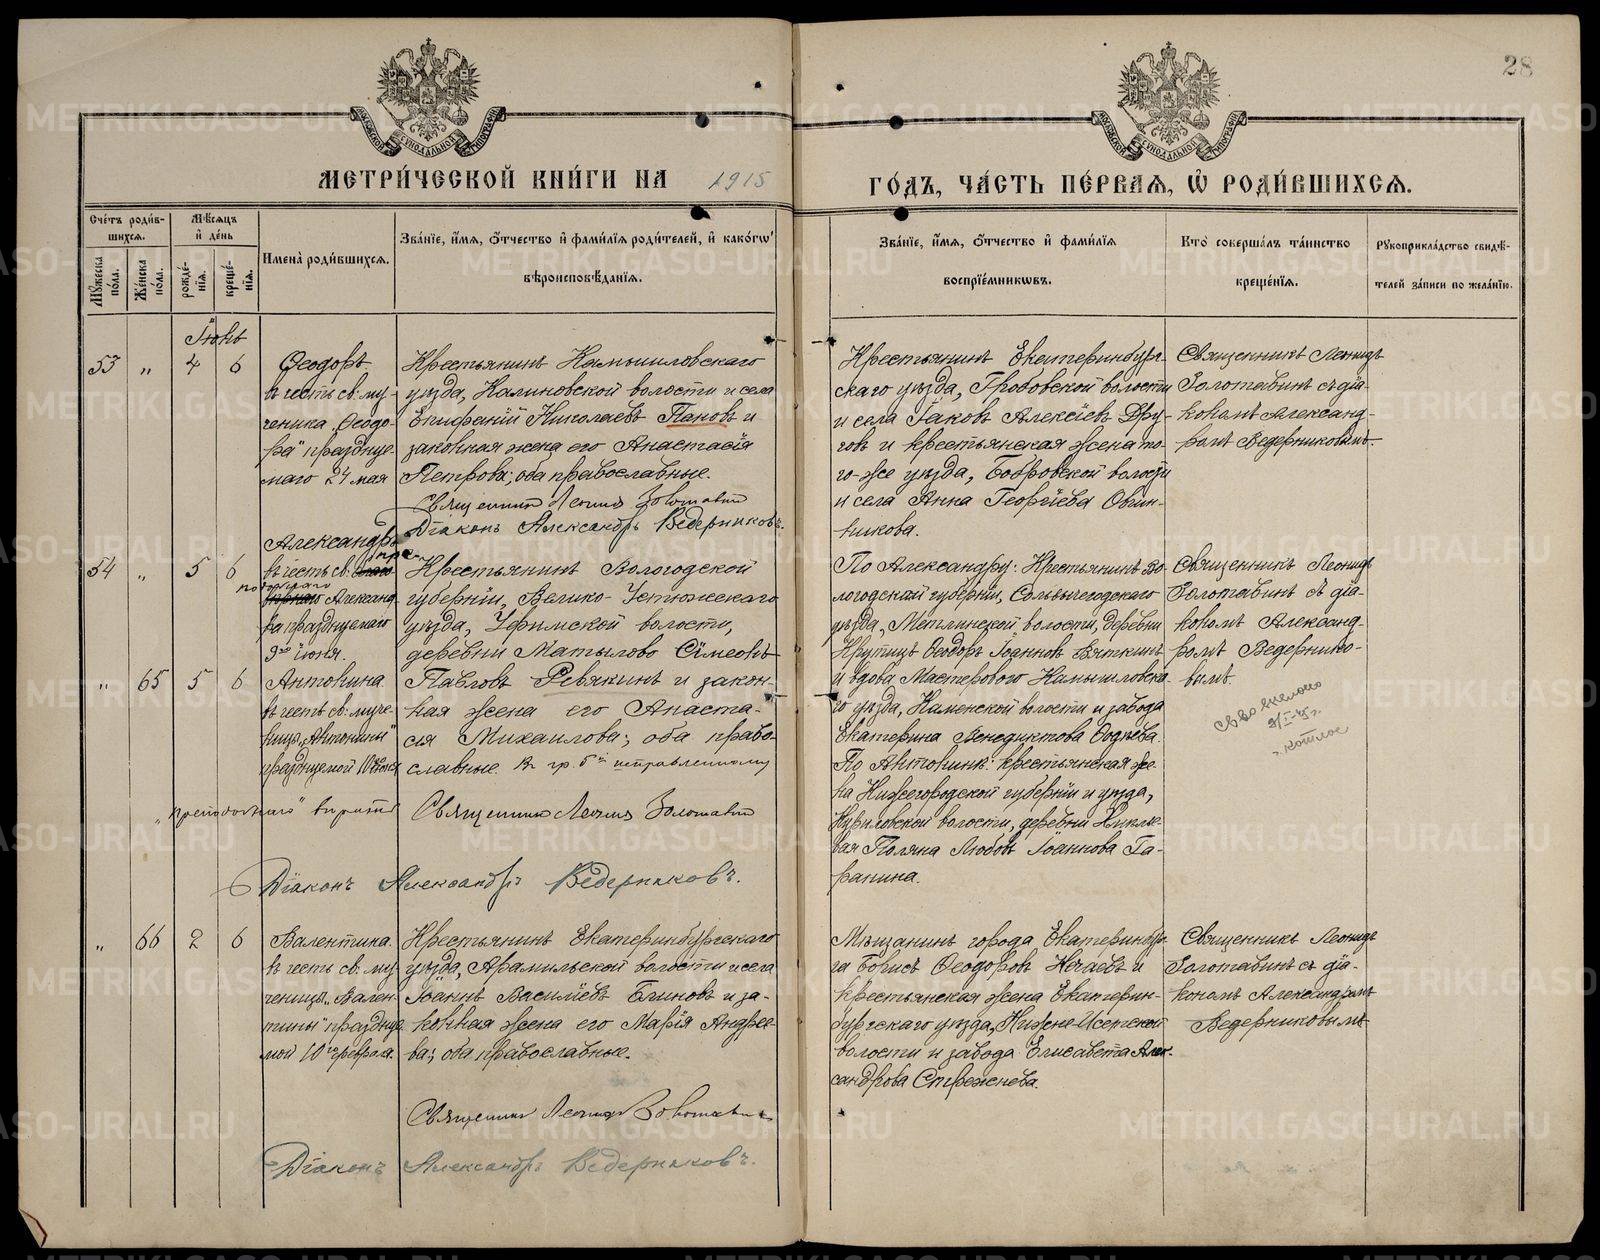 28
МЕТРИ́ЧЕСКОЙ КНИ́ГИ НА 1915
ГО́ДЪ, ЧА́СТЬ ПЕ́РВАЯ, Ѡ РОДИ́ВШИХСЯ.
Сче́тъ роди́в-
шихся.
Мѣ́сяцъ
и де́нь
Мꙋжеска по́ла.
Же́нска по́ла.
рожде́-
нія.
креще́-
нія.
Имена̀ роди́вшихся.
Зва́ніе, и́мя, о́тчество и фами́лія роди́телей, и како́гѡ
вѣроисповѣ́данія.
Зва́ніе, и́мя, о́тчество и фами́лія
воспріе́мникѡвъ.
Кто̀ соверша́лъ та́инство
креще́нія.
Рꙋкоприкла́дство свидѣ́-
телей за́писи по жела́нію.
Іюнь
53 „ 4 6
Ѳеодоръ
въ честь св: му-
ченика „Ѳеодо-
ра" празднуе-
маго 24 мая
Крестьянинъ Камышловскаго
уѣзда, Калиновской волости и села
Епифаній Николаевъ Пановъ и
законная жена его Анастасія
Петрова; оба православные.
Священникъ Леонидъ Золотавинъ
Діаконъ Александръ Ведерниковъ.
Крестьянинъ Екатеринбург-
скаго уѣзда, Гробовской волости
и села Іаковъ Алексіевъ Дру-
говъ и крестьянская жена то-
го-же уѣзда, Бобровской волости
и села Анна Георгіева Овчин-
никова.
Священникъ Леонидъ
Золотавинъ съ діа-
кономъ Александ-
ромъ Ведерниковымъ.
54 „ 5 6
Александръ
въ честь св:
преподобнаго
Александ-
ра празднуемаго
9го іюня.
Крестьянинъ Вологодской
губерніи, Велико-Устюжскаго
уѣзда, Уфимской волости,
деревни Матылово Сімеонъ
„ 65 5 6
Антонина
въ честь св: муче-
ницы „Антонины"
празднуемой 10 іюня
Павловъ Ревякинъ и закон-
ная жена его Анаста-
сія Михаилова; оба право-
славные. Въ гр. 5й исправленному
„преподобнаго" вѣрить
Священникъ Леонидъ Золотавинъ
Діаконъ Александръ Ведерниковъ.
По Александру: Крестьянинъ Во-
логодской губерніи, Сольвычегодскаго
уѣзда, Метлинской волости, деревни
Крутицъ Ѳеодоръ Іоанновъ Вяткинъ
и вдова Мастерового Камышловска-
го уѣзда, Каменской волости и завода
Екатерина Венедиктова
По Антонинѣ: крестьянская же-
на Нижегородской губерніи и уѣзда,
волости, деревни
Поляна Любовь Іоаннова Га-
ранина.
Священникъ Леонидъ
Золотавинъ съ діа-
кономъ Александ-
ромъ Ведернико-
вымъ.
„ 66 2 6
Валентина
въ честь св: му-
ченицы „Вален-
тины" праздну-
мой 10го февраля.
Крестьянинъ Екатеринбургскаго
уѣзда, Арамильской волости и села
Іоаннъ Василіевъ Блиновъ и за-
конная жена его Марія Андрее-
ва; оба православные.
Священникъ Леонидъ Золотавинъ
Діаконъ Александръ Ведерниковъ.
Мѣщанинъ города Екатеринбур-
га Борисъ Ѳеодоровъ Нечаевъ и
крестьянская жена Екатерин-
бургскаго уѣзда, Нижне-Исетской
волости и завода Елисавета Алек-
сандрова Стреженева.
Священникъ Леонидъ
Золотавинъ съ діа-
кономъ Александромъ
Ведерниковымъ